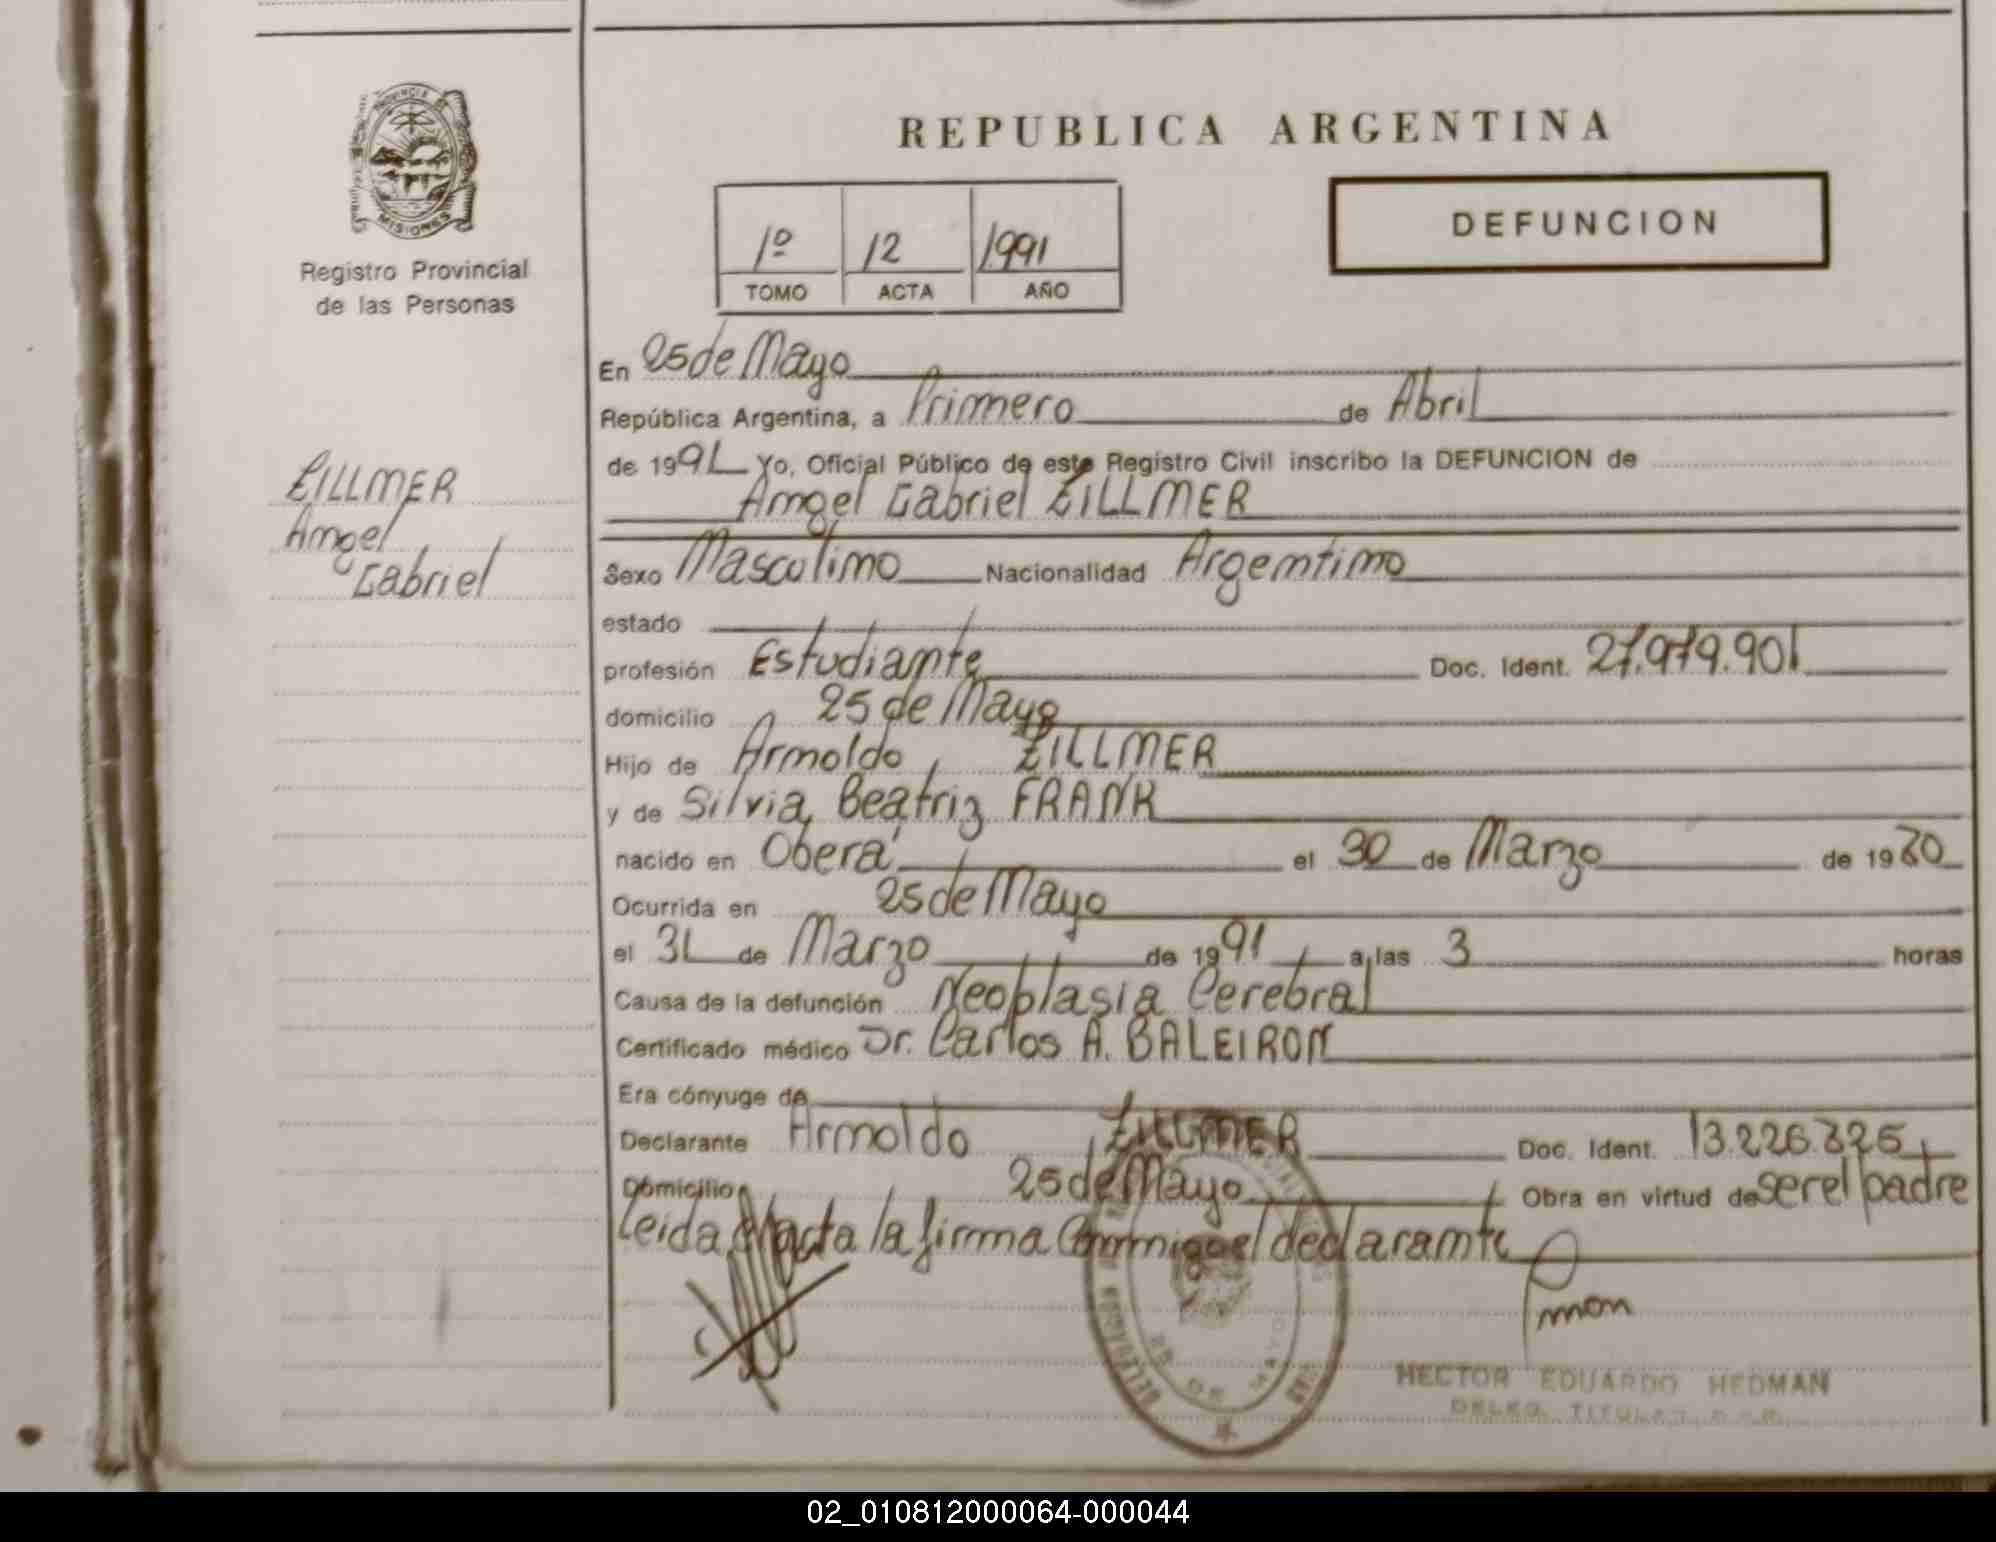 REPUBLICA ARGENTINA
DEFUNCION
PROVINCIA DE
MISIONES
Registro Provincial
de las Personas
1º 12 1991
TOMO ACTA AÑO
ZILLMER
Angel
Gabriel
En 25 de Mayo
República Argentina, a Primero de Abril
de 1991 Yo, Oficial Público de este Registro Civil inscribo la DEFUNCION de
Angel Gabriel ZILLMER
Sexo Masculino Nacionalidad Argentino
estado
profesión Estudiante Doc. Ident. 27.979.901
domicilio 25 de Mayo
Hijo de Arnoldo ZILLMER
y de Silvia Beatriz FRANK
nacido en Oberá el 30 de Marzo de 1980
Ocurrida en 25 de Mayo
el 31 de Marzo de 1991 a las 3 horas
Causa de la defunción Neoplasia Cerebral
Certificado médico Dr. Carlos A. BALEIRON
Era cónyuge de
Declarante Arnoldo ZILLMER Doc. Ident. 13.226.325
Domicilio 25 de Mayo Obra en virtud de ser el padre
Leida el acta la firma Conmigo el declarante
HECTOR EDUARDO HEDMAN
DELEG. TITULAR
25 DE MAYO
02_010812000064-000044